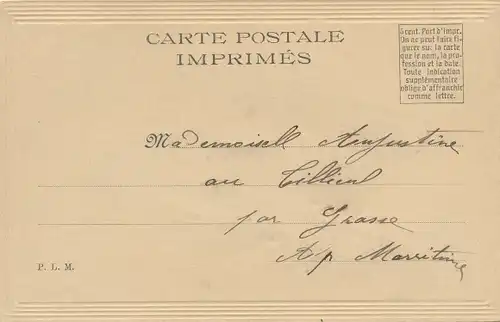 CARTE POSTALE
IMPRIMÉS
5 cent. Port d'impr.
On ne peut faire fi-
gurer sur la carte
que le nom, la pro-
fession et la date.
Toute indication
supplémentaire
oblige d'affranchir
comme lettre.
Mademoisell Augustine
au Tillieul
par Grasse
A/p Marritime
P. L. M.